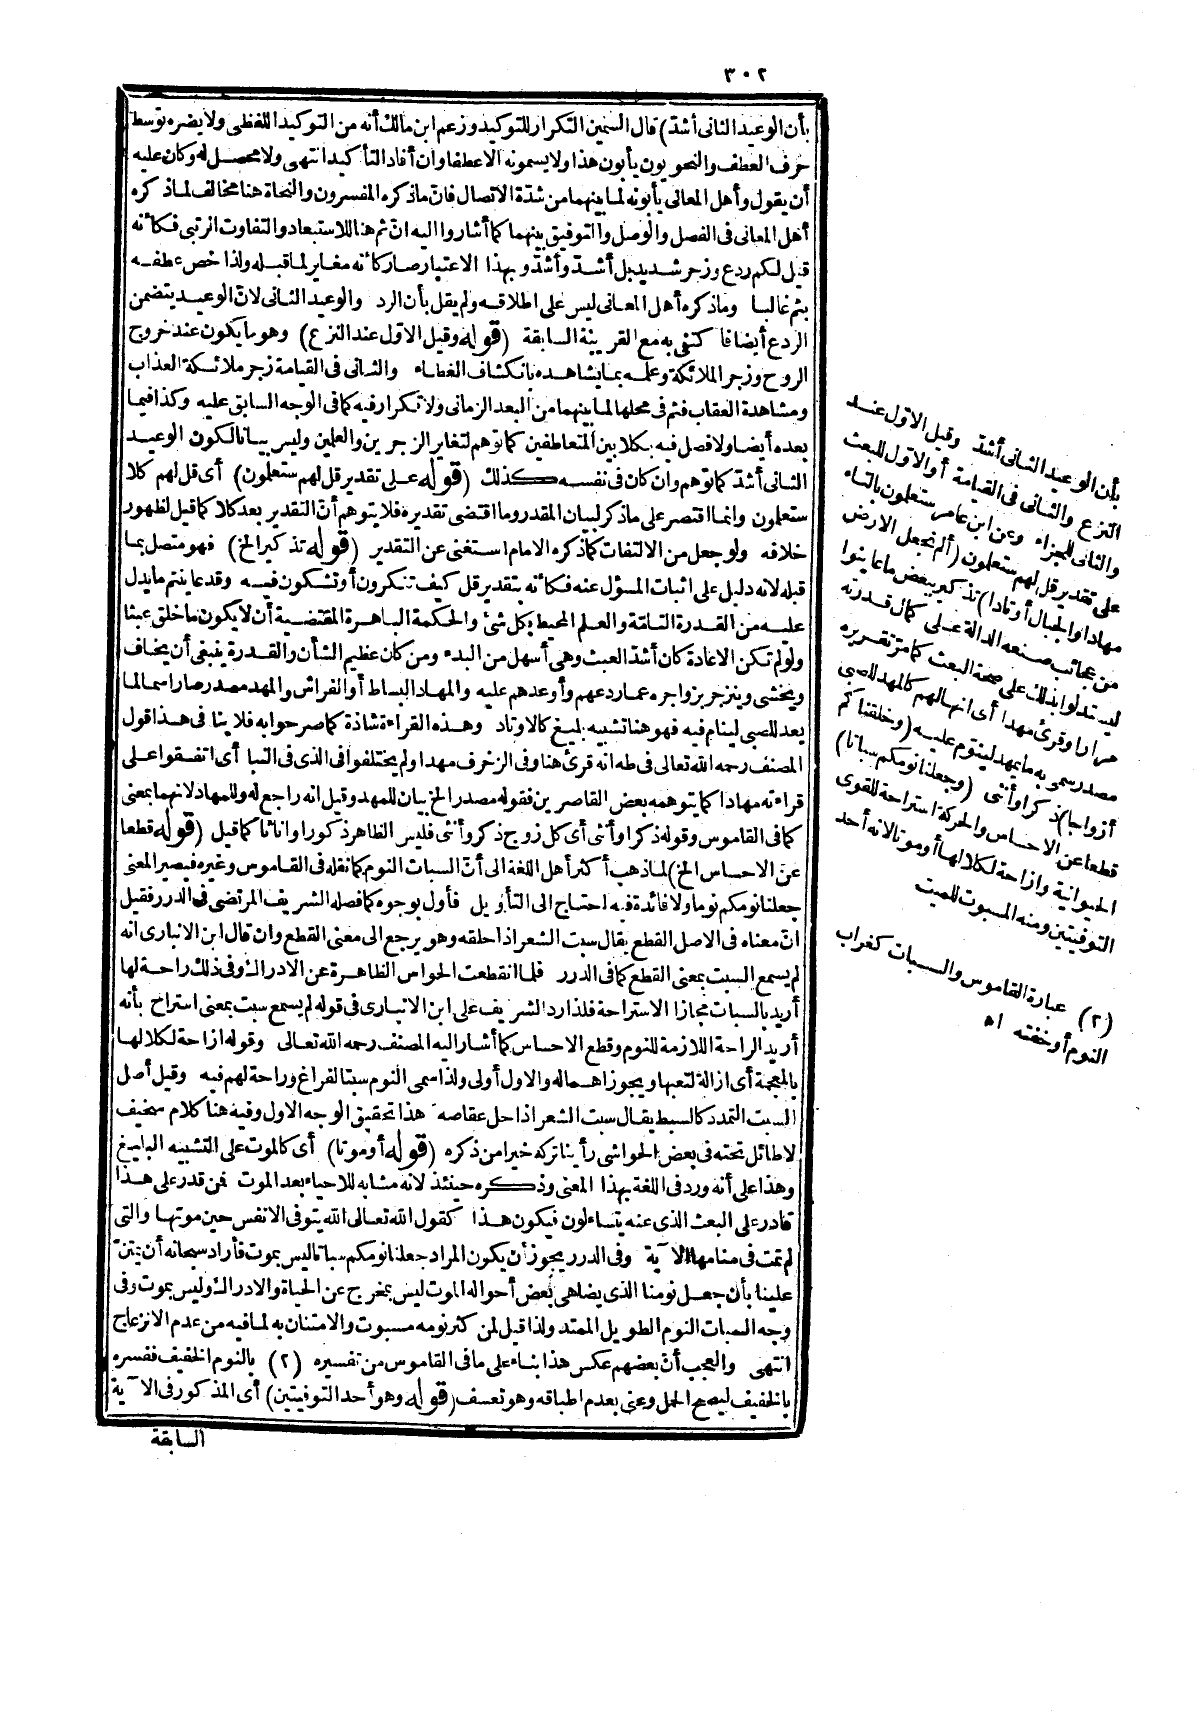 ٣٠٢
بأن الوعيد الثانى أشدّ) قال السمين التكرار للتوكيد وزعم ابن مالك أنه من التوكيد اللفظى ولا يضره توسط
حرف العطف والنحويون يأبون هذا ولا يسمونه الا عطفا وان أفاد التأكيد انتهى ولا محصل له وكان عليه
أن يقول وأهل المعانى يأبونه لما بينهما من شدّة الاتصال فانّ ما ذكره المفسرون والنحاة هنا مخالف لما ذكره
أهل المعانى فى الفصل والوصل والتوفيق بينهما كما أشاروا اليه انّ ثم هنا للاستبعاد والتفاوت الرتبى فكأنه
قيل لكم ردع وزجر شديد بل أشدّ وأشدّ وبهذا الاعتبار صار كأنه مغاير لما قبله ولذا خص عطفه
بثم غالبا وما ذكره أهل المعانى ليس على اطلاقه ولم يقل بأن الرد والوعيد الثانى لانّ الوعيد يتضمن
الردع أيضا فاكتفى به مع القرينة السابقة (قوله وقيل الاوّل عند النزع) وهو ما يكون عند خروج
الروح وزجر الملائكة وعلمه بما يشاهده بانكشاف الغطاء والثانى فى القيامة زجر ملائكة العذاب
ومشاهدة العقاب فثم فى محلها لما بينهما من البعد الزمانى ولا تكرار فيه كما فى الوجه السابق عليه وكذا فيما
بعده أيضا ولا فصل فيه بكلا بين المتعاطفين كما توهم لتغاير الزجرين والعلمين وليس بيانا لكون الوعيد
الثانى أشدّ كما توهم وان كان فى نفسه كذلك (قوله على تقدير قل لهم ستعلمون) أى قل لهم كلا
ستعلمون وانما اقتصر على ما ذكر لبيان المقدر وما اقتضى تقديره فلا يتوهم أنّ التقدير بعد كلا كما قيل لظهور
خلافه ولو جعل من الالتفات كما ذكره الامام استغنى عن التقدير (قوله تذكير الخ) فهو متصل بما
قبله لانه دليل على اثبات المسؤل عنه فكأنه بتقدير قل كيف تنكرون أو تشكون فيه وقد عاينتم ما يدل
عليه من القدرة التامّة والعلم المحيط بكل شئ والحكمة الباهرة المقتضية أن لا يكون ما خلق عبثا
ولو لم تكن الاعادة كان أشدّ العبث وهى أسهل من البدء ومن كان عظيم الشأن والقدرة ينبغى أن يخاف
ويخشى وينزجر بزواجره عما ردعهم وأوعدهم عليه والمهاد البساط أو الفراش والمهد مصدر صار اسما لما
يعد للصبى لينام فيه فهو هنا تشبيه بليغ كالاوتاد وهذه القراءة شاذة كما صرحوا به فلا ينا فى هذا قول
المصنف رحمه الله تعالى فى طه انه قرئ هنا وفى الزخرف مهدا ولم يختلفوا فى الذى فى النبا أى اتفقوا على
قراءته مهادا كما يتوهمه بعض القاصرين فقوله مصدر الخ بيان للمهد وقيل انه راجع له وللمهاد لانهما بمعنى
كما فى القاموس وقوله ذكرا وأنثى أى كل زوج ذكر وأنثى فليس الظاهر ذكورا واناثا كما قيل (قوله قطعا
عن الاحساس الخ) لما ذهب أكثر أهل اللغة الى أنّ السبات النوم كما نقله فى القاموس وغيره فيصير المعنى
جعلنا نومكم نوما ولا فائدة فيه احتاج الى التأويل فأول بوجوه كما فصله الشريف المرتضى فى الدرر فقيل
انّ معناه فى الاصل القطع يقال سبت الشعر اذا حلقه وهو يرجع الى معنى القطع وان قال ابن الانبارى انه
لم يسمع السبت بمعنى القطع كما فى الدرر فلما انقطعت الحواس الظاهرة عن الادراك وفى ذلك راحة لها
أريد بالسبات مجازا الاستراحة فلذا رد الشريف على ابن الانبارى فى قوله لم يسمع سبت بمعنى استراح بأنه
أريد الراحة اللازمة للنوم وقطع الاحساس كما أشار اليه المصنف رحمه الله تعالى وقوله ازاحة لكلالها
بالمعجمة أى ازالة لتعبها ويجوز اهماله والاول أولى ولذا سمى النوم سبتا لفراغ وراحة لهم فيه وقيل أصل
السبت التمدد كالسبط يقال سبت الشعر اذا حل عقاصه هذا تحقيق الوجه الاول وفيه هنا كلام سخيف
لا طائل تحته فى بعض الحواشى رأينا تركه خيرا من ذكره (قوله أو موتا) أى كالموت على التشبيه البليغ
وهذا على أنه ورد فى اللغة بهذا المعنى وذكره حينئذ لانه مشابه للاحياء بعد الموت فمن قدر على هذا
قادر على البعث الذى عنه يتساءلون فيكون هذا كقول الله تعالى الله يتوفى الانفس حين موتها والتى
لم تمت فى منامها الآية وفى الدرر يجوز أن يكون المراد جعلنا نومكم سباتا ليس بموت فأراد سبحانه أن يمتنّ
علينا بأن جعل نومنا الذى يضاهى بعض أحواله الموت ليس بمخرج عن الحياة والادراك وليس بموت وفى
وجه السبات النوم الطويل الممتد ولذا قيل لمن كثر نومه مسبوت والامتنان به لما فيه من عدم الانزعاج
انتهى والعجب أنّ بعضهم عكس هذا بناء على ما فى القاموس من تفسيره (٢) بالنوم الخفيف ففسره
بالخفيف ليصح الحمل وعنى بعدم اطباقه وهو تعسف (قوله وهو أحد التوفيتين) أى المذكور فى الآية
السابقة
بأن الوعيد الثانى أشدّ وقيل الاوّل عند
النزع والثانى فى القيامة أو الاوّل للبعث
والثانى للجزاء وعن ابن عامر ستعلمون بالتاء
على تقدير قل لهم ستعلمون (ألم نجعل الارض
مهادا والجبال أوتادا) تذكير ببعض ما عاينوا
من عجائب صنعه الدالة على كمال قدرته
ليستدلوا بذلك على صحة البعث كما مرّ تقريره
مرارا وقرئ مهدا أى انها لهم كالمهد للصبى
مصدر سمى به ما يمهد لينوّم عليه (وخلقناكم
أزواجا) ذكرا وأنثى (وجعلنا نومكم سباتا)
قطعا عن الاحساس والحركة استراحة للقوى
الحيوانية وازاحة لكلالها أو موتا لانه أحد
التوفيتين ومنه المسبوت للميت
(٢) عبارة القاموس والسبات كغراب
النوم أو خفته اه